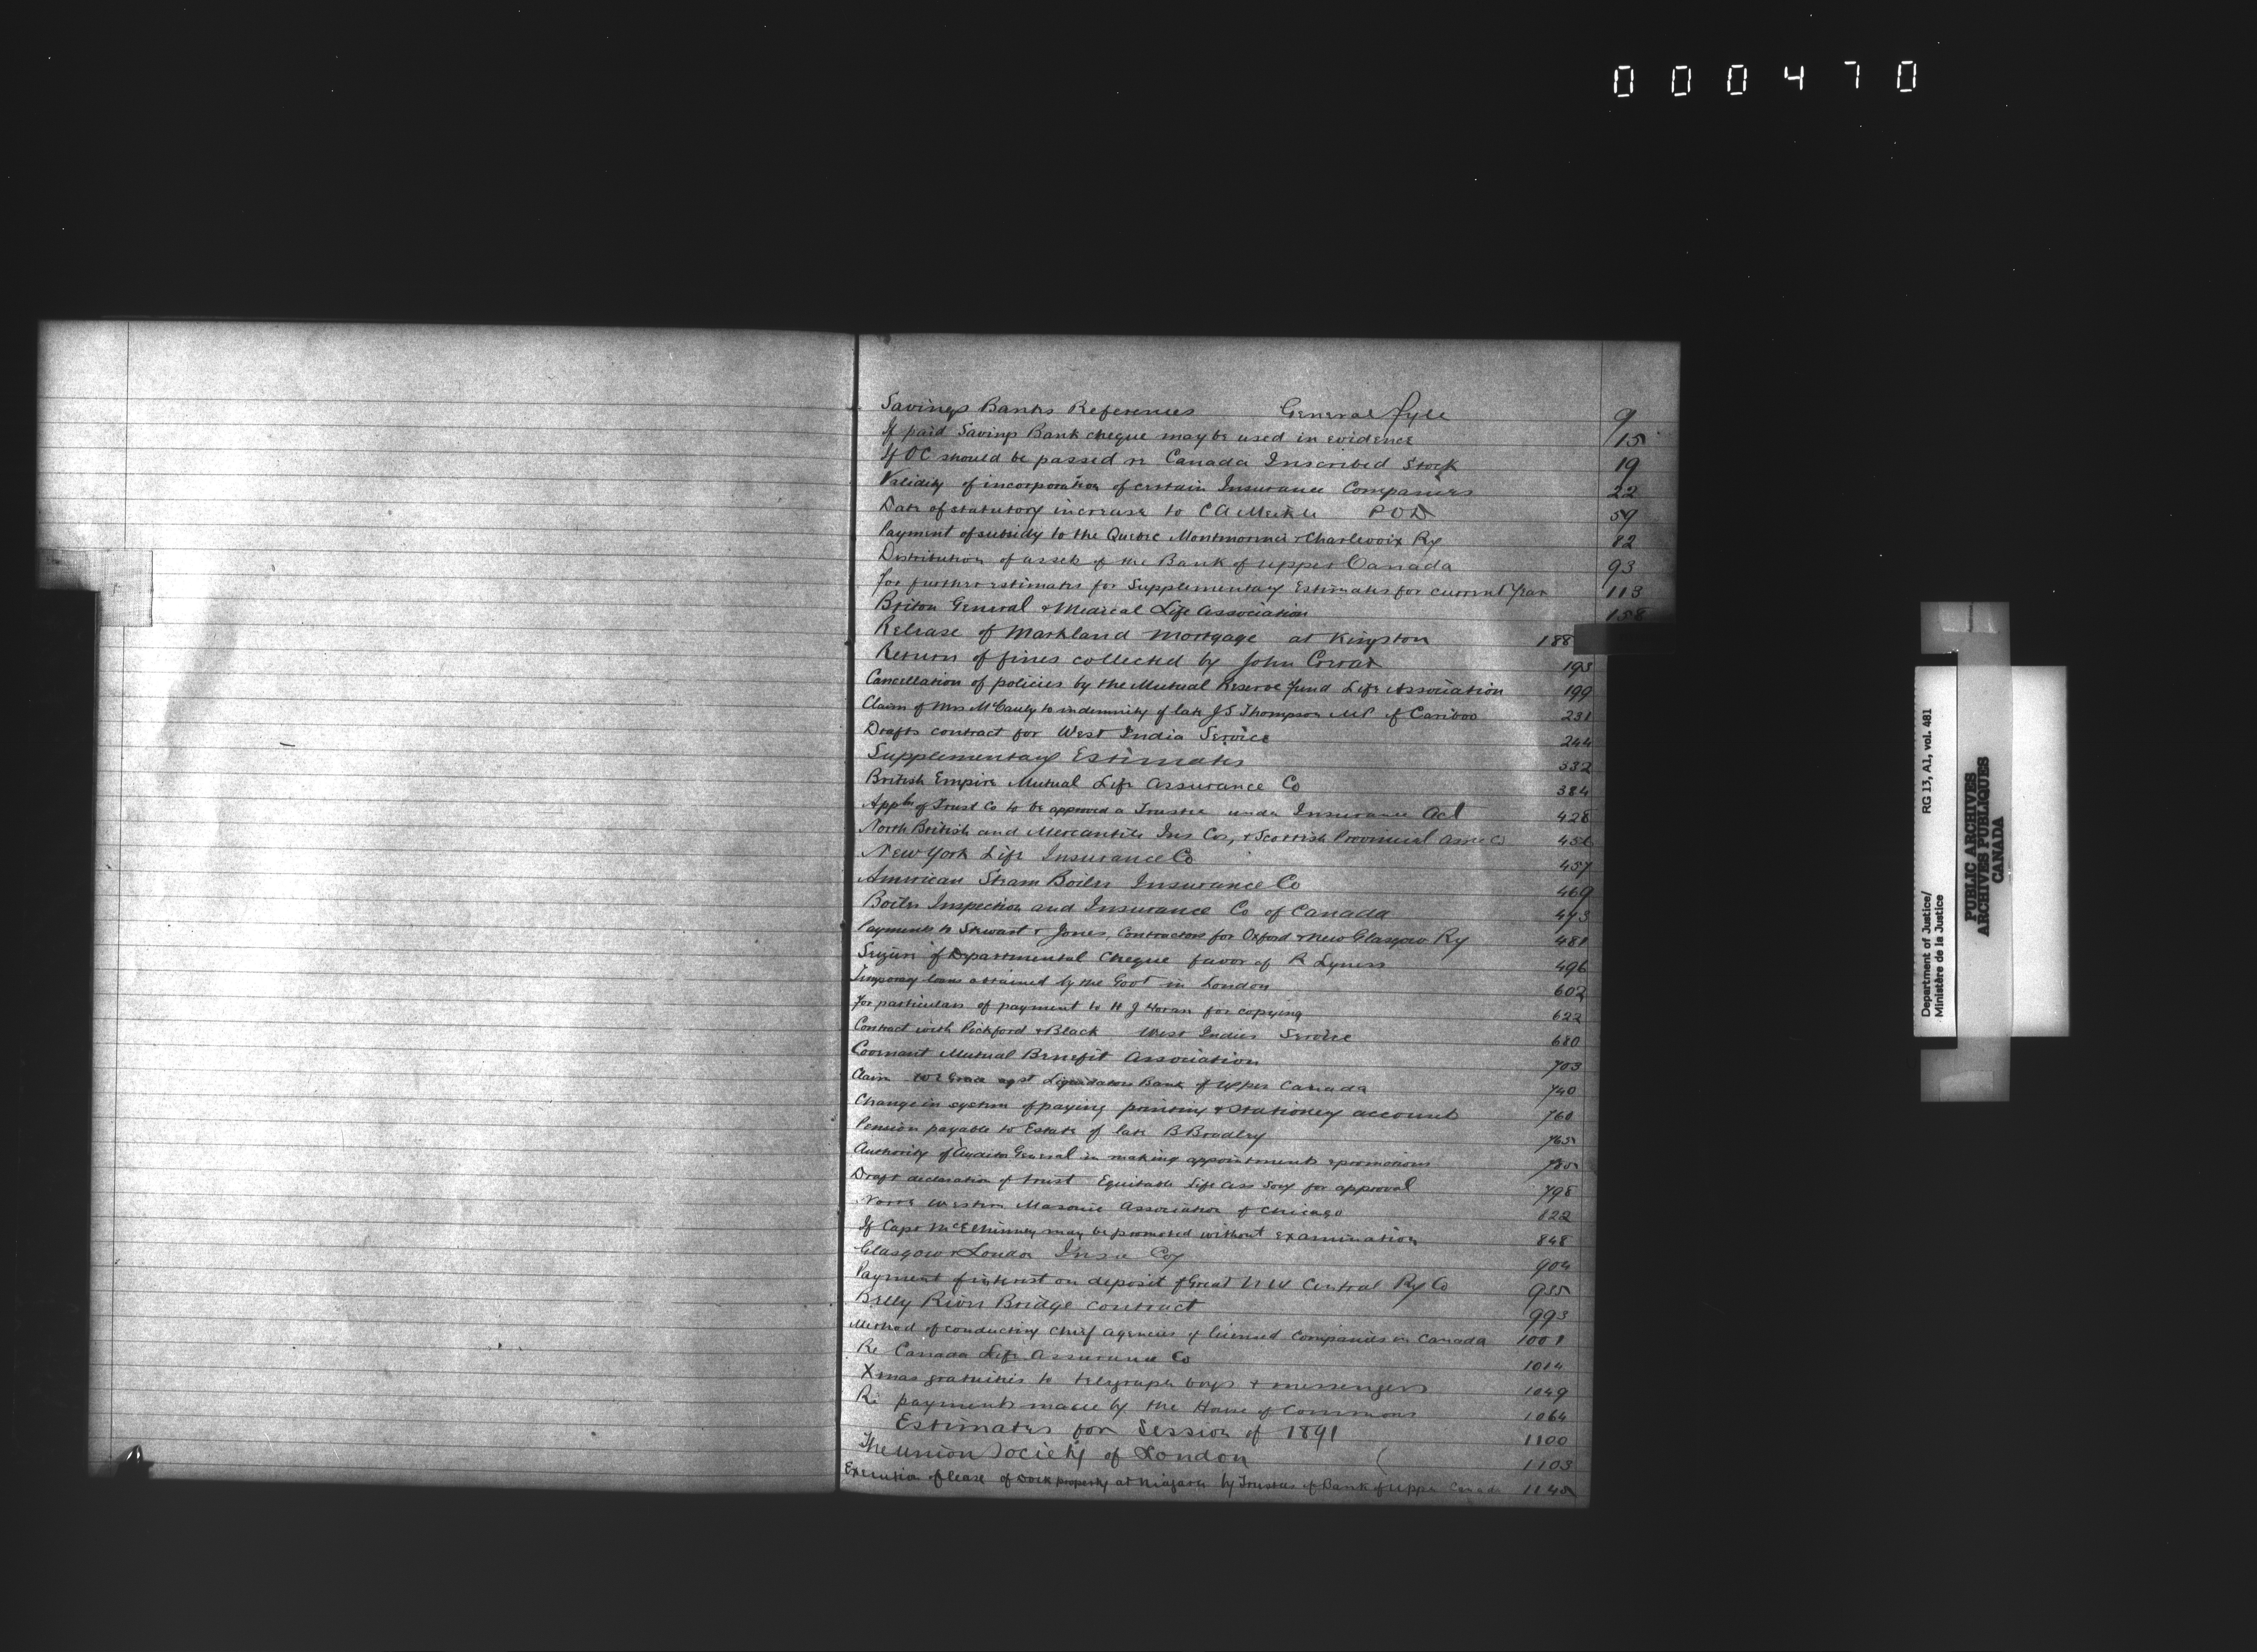 000470
Savings Banks References General fyle 9
If paid Savings Bank cheque may be used in evidence 15
If OC should be passed re Canada Inscribed Stock 19
Validity of incorporation of certain Insurance Companies 22
Date of statutory increase to C A POD 59
Payment of subsidy to the Quebec Montmorenci & Charlevoix Ry 82
Distribution of assets of the Bank of Upper Canada 93
for further estimates for Supplementary Estimates for current year 113
Briton General & Medical Life Association 158
Release of Markland Mortgage at Kingston 188
Return of fines collected by John 193
Cancellation of policies by the Mutual Reserve Fund Life Association 199
Claim of Mrs McCauly to indemnity of late J S Thompson MP of Cariboo 231
Drafts contract for West India Service 244
Supplementary Estimates 332
British Empire Mutual Life Assurance Co 384
Appln of Trust Co to be approved a Trustee under Insurance Act 428
North British and Mercantile Ins Co, & Scottish Provincial Assce Co
New York Life Insurance Co 457
American Steam Boiler Insurance Co 469
Boiler Inspection and Insurance Co of Canada 473
Payments to Stewart & Jones, Contractors for Oxford & New Glasgow Ry 481
Seizure of Departmental Cheque favor of R Lyness 496
Temporary loans obtained by the Govt in London 602
For particulars of payment to H J Horan for copying 622
Contract with Pickford & Black West Indies Service 680
Covenant Mutual Benefit Association 703
Claim agst Liquidators Bank of Upper Canada 740
Change in system of paying printing & stationery accounts 760
Pension payable to Estate of late B Bradley 765
Authority of Auditor General in making appointments & promotions
Draft declaration of trust Equitable Life Ass Socy for approval 798
North Western Masonic Association of Chicago 822
If Capt McElhinney may be promoted without examination 848
Glasgow & London Insce Coy 904
Payment of interest on deposit of Great N W Central Ry Co 935
Belly River Bridge contract 993
Method of conducting chief agencies of licensed Companies in Canada 1001
Re Canada Life Assurance Co 1014
Xmas gratuities to telegraph boys & messengers 1049
Re payments made by the House of Commons 1064
Estimates for Session of 1891 1100
The Union Society of London 1103
Execution of lease of Dock property at Niagara by Trustees of Bank of Upper Canada 1145
Department of Justice/ RG 13, A1, vol. 481
Ministère de la Justice
PUBLIC ARCHIVES
ARCHIVES PUBLIQUES
CANADA